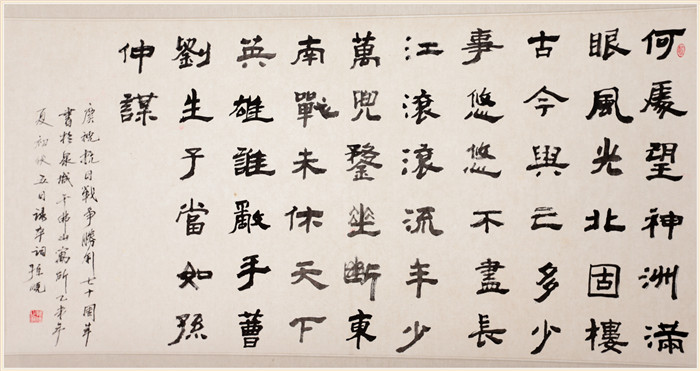 何處望神洲滿
眼風光北固樓
古今興亡多少
事悠悠不盡長
江滾滾流年少
萬兜鍪坐斷東
南戰未休天下
英雄誰敵手曹
劉生子當如孫
仲謀
慶祝抗日戰爭勝利七十周年
書於泉城千佛山寓所乙未年
夏初伏五日錄辛詞